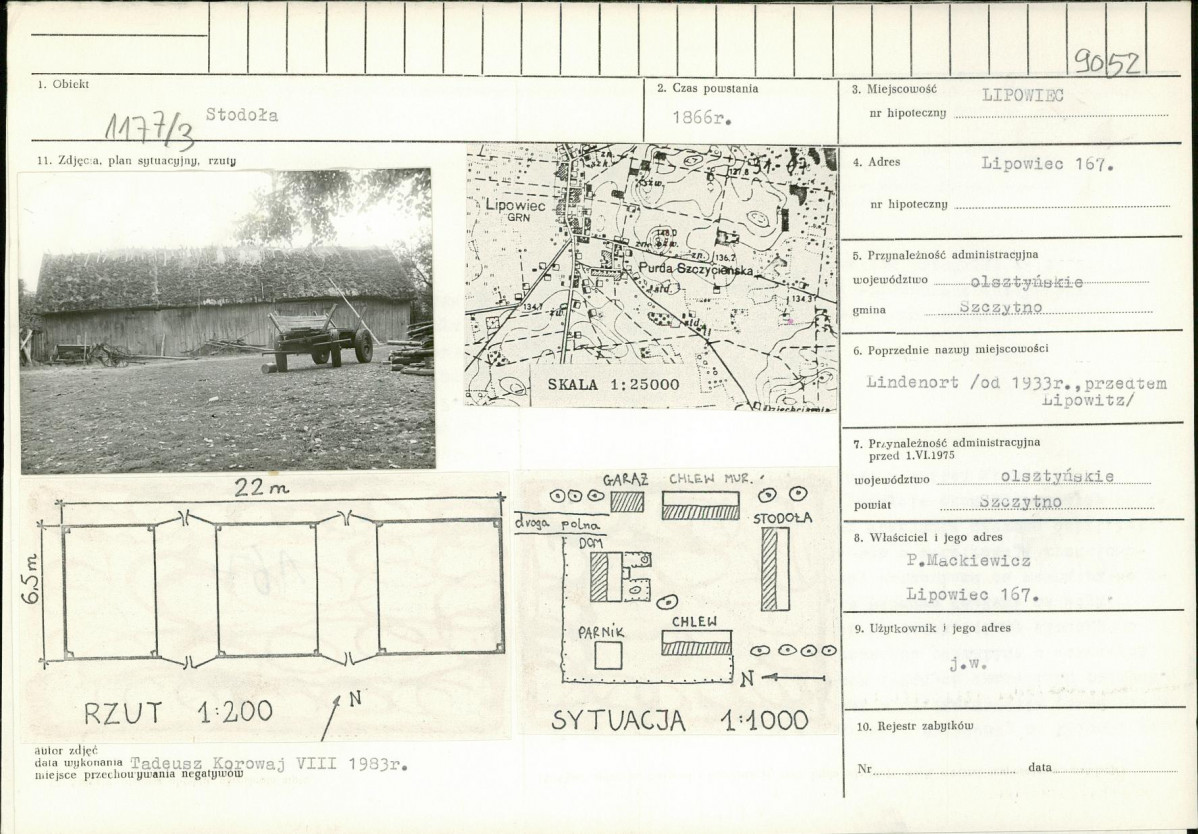 9052
1. Obiekt
1177/3
Stodoła
2. Czas powstania
1866r.
3. Miejscowość LIPOWIEC
nr hipoteczny
11. Zdjęcia, plan sytuacyjny, rzuty
4. Adres Lipowiec 167.
nr hipoteczny
5. Przynależność administracyjna
województwo olsztyńskie
gmina Szczytno
6. Poprzednie nazwy miejscowości
Lindenort /od 1933r.,przedtem
Lipowitz/
7. Przynależność administracyjna
przed 1.VI.1975
województwo olsztyńskie
powiat Szczytno
8. Właściciel i jego adres
P.Mackiewicz
Lipowiec 167.
9. Użytkownik i jego adres
j.w.
10. Rejestr zabytków
Nr data
Lipowiec
GRN
137,8
148,0
136,2
Purda Szczycieńska
134,7
134,3
std.
SKALA 1:25000
22 m
6,5 m
RZUT 1:200
N
GARAŻ CHLEW MUR.
droga polna
STODOŁA
DOM
PARNIK
CHLEW
N
SYTUACJA 1:1000
autor zdjęć
data wykonania Tadeusz Korowaj VIII 1983r.
miejsce przechowywania negatywów